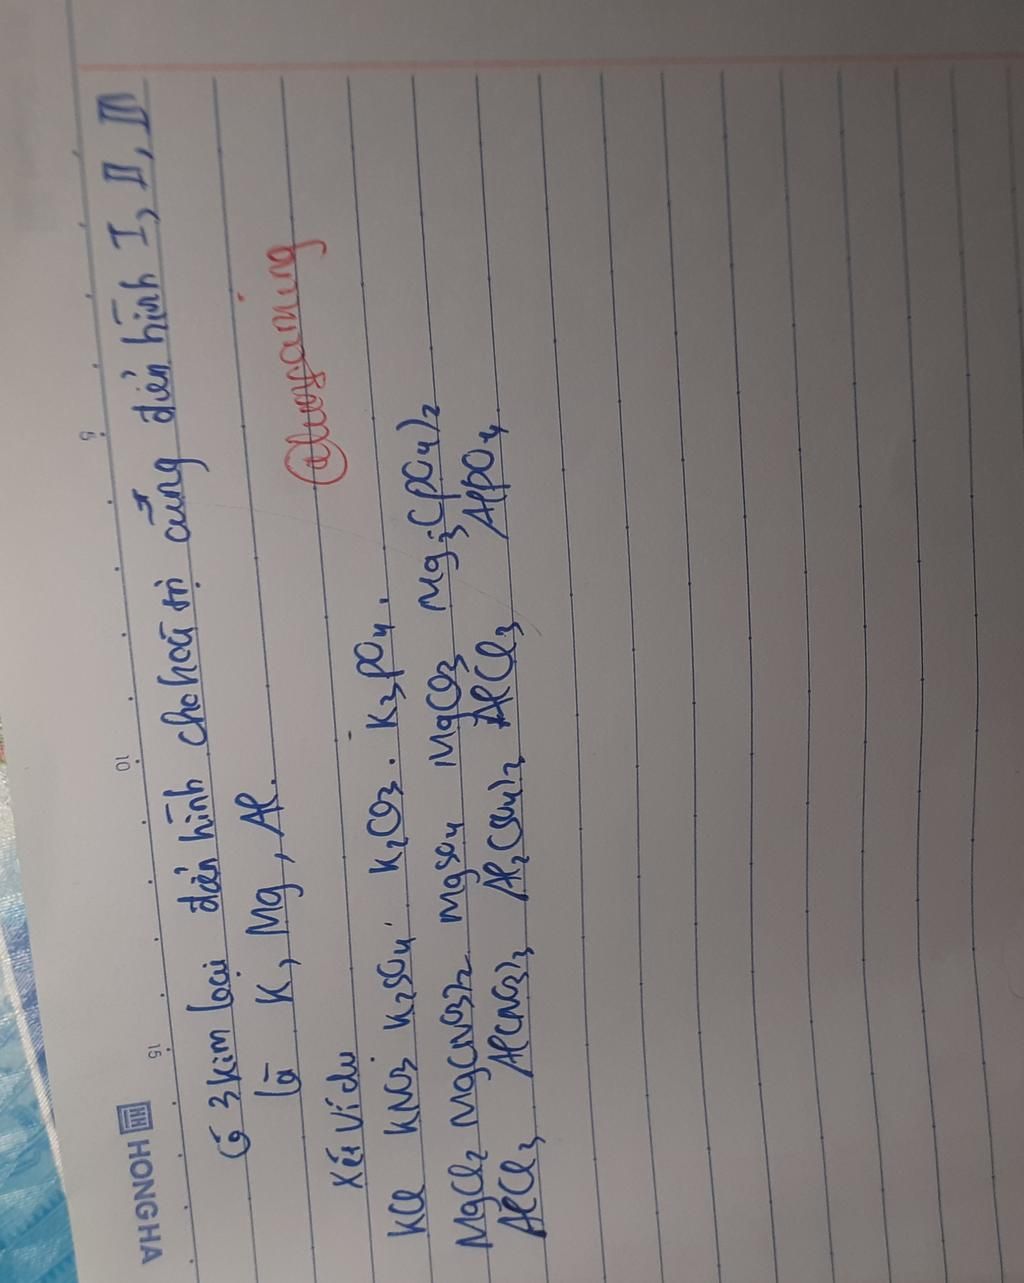 HH HONGHA
15
10
5
Có 3 kim loại điển hình cho hoá trị cũng điển hình I, II, III
là K, Mg, Al.
@duoyaming
Xét ví dụ
KCl KNO3 K2SO4 K2CO3. K3PO4.
MgCl2 Mg(NO3)2 MgSO4 MgCO3 Mg3(PO4)2
AlCl3 Al(NO3)3 Al2(SO4)3 AlCl3 AlPO4